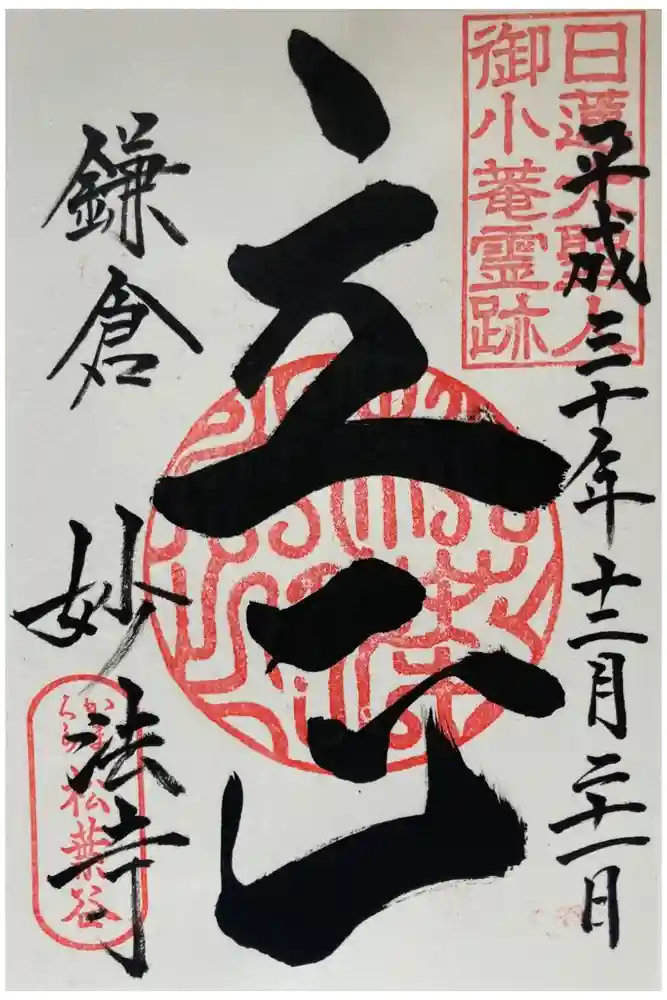 日蓮大聖人
御小菴霊跡
平成三十年十二月二十一日
立正
鎌倉 妙法寺
かまくら
松葉谷